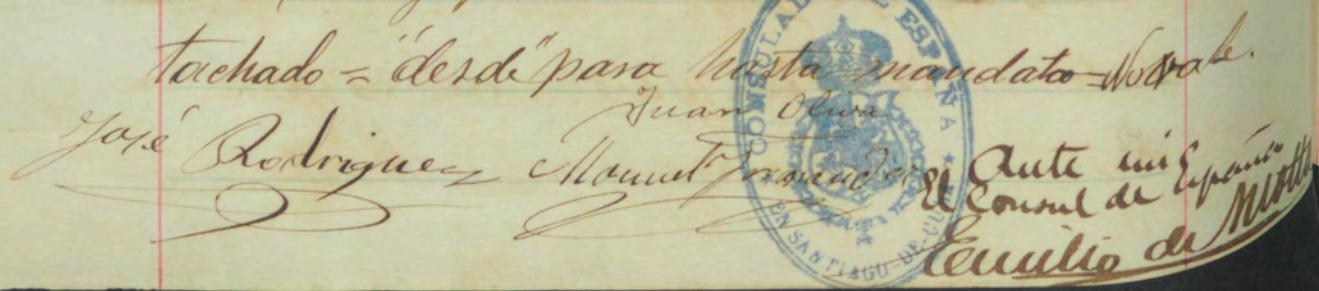 tachado = "desde" para hasta mandato = No vale.
Juan Oliva
José Rodriguez Manuel Fernandez
Ante mi
El Consul de España
Emilio de Motta
CONSULADO DE ESPAÑA
EN SANTIAGO-DE-CUBA